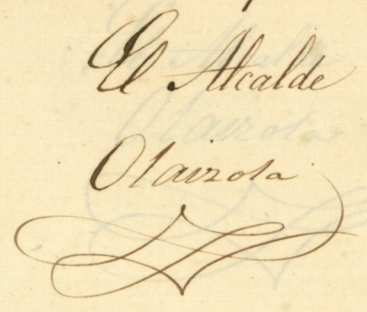 El Alcalde
Olaizola